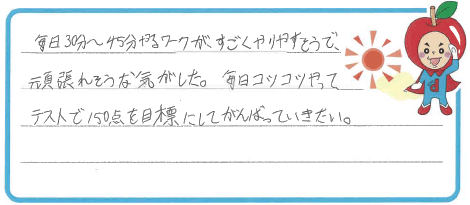 毎日30分〜45分やるワークがすごくやりやすそうで、
頑張れそうな気がした。毎日コツコツやって
テストで150点を目標にしてがんばっていきたい。